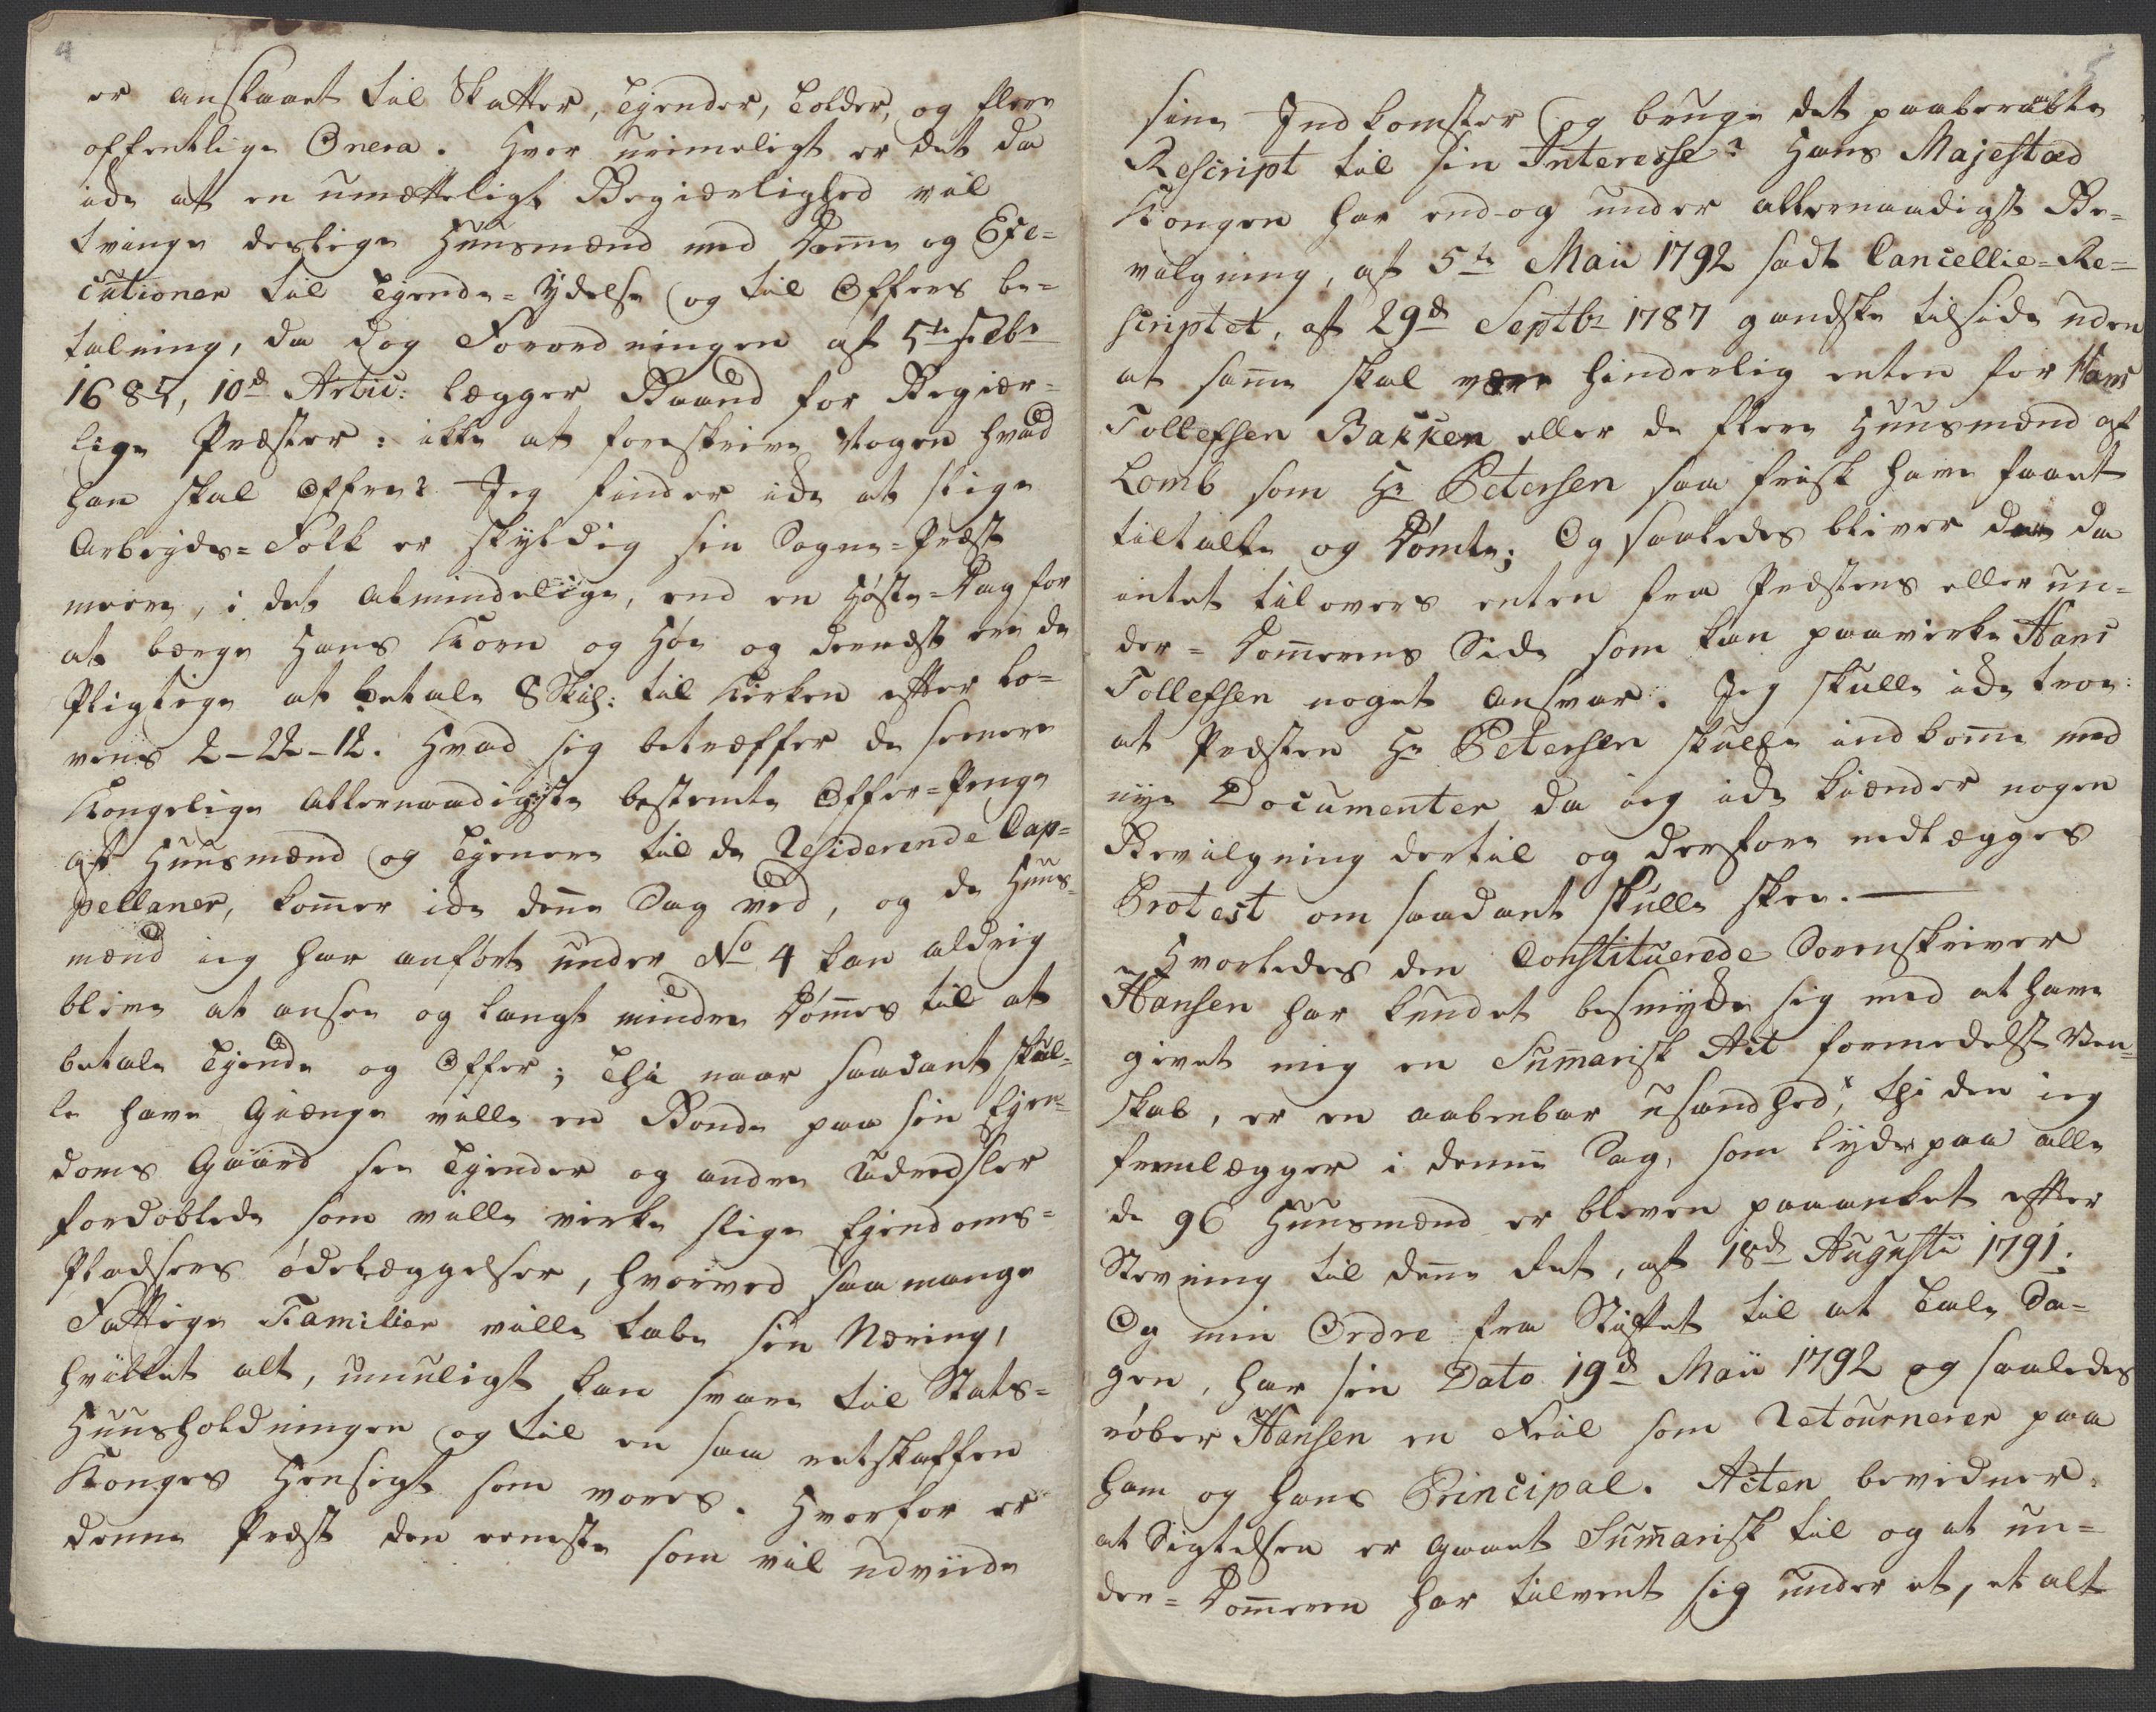 4
er anskaaret til Skatter, Tjender, Tolder, og flere
offentlige Onera. Hvor urimeligt er det da
icke at en umætteligt Begierlighed vil
tvinge deslige Huusmænd med Domme og Exe=
cutioner til Tjende=Ydelse og til Offers be=
talning, da dog Forordningen af 5te Febr
1685, 10d Artic: lægger Baand for Begier=
lige Præster: ikke at foreskrive Nogen hvad
han skal offre? Jeg finder icke at slige
Arbeyds=Folk er skyldig sin Sogne=Præst
meere, i det Almindelige, end en Høste=Dag for
at berge Hans Korn og Høe og dernest ere de
Pligtige at betale 8 Skil: til Kirken efter Lo=
vens 2-22-12. Hvad sig betræffer de seenere
Kongelige Allernaadigste bestemte Offer=Penge
af Huusmænd og Tjenere til de Residerende Cap=
pellaner, kommer icke denne Sag ved, og de Huus=
mænd ieg har anført under No 4 kan aldrig
blive at ansee og langt mindre Dømmes til at
betale Tjende og Offer; Thi naar saadant skul=
le have Gienge ville en Bonde paa sin Ejen=
doms Gaard see Tjender og andre Udredsler
fordoblede som ville virke slige Ejendoms=
Pladsers ødelæggelser, hvorved saa mange
Fattige Familier ville tabe sin Næring,
hvilket alt, umuligt kan svare til Stats=
Huusholdningen og til en saa retskaffen
Konges Hensigt som vores. Hvorfor er
denne Præst den eeneste som vil udviide
5
sine Indkomster og bruge det paaberaabte
Rescript til sin Interesse? Hans Majestæd
Kongen har end-og under allernaadigst Be=
vilgning, af 5te Maii 1792 sadt Cancellie=Re=
scriptet, af 29d Septbr 1787 gandske tilside uden
at samme skal være hinderlig enten for Hans
Tollefsen Bakken eller de flere Huusmænd af
Lomb som Hr Petersen saa frisk have faaet
tiltalte og Dømte; Og saaledes bliver der da
intet tilovers enten fra Præstens eller un=
der=Dommerens Side som kan paavirke Hans
Tollefsen noget Ansvar. Jeg skulle icke troe:
at Præsten Hr Petersen skulle indkomme med
nye Documenter da ieg icke kiender nogen
Bevilgning dertil og derfore nedlægges
Protest om saadant skulle skee. —
Hvorledes den Constituerede Sorenskriver
Hansen har kundet besmykke sig med at have
givet mig en Summarisk Act formedelst Ven=
skab, er en aabenbar usandhed, thi den ieg
fremlægger i denne Sag, som lyder paa alle
de 96 Huusmænd er bleven paaanket efter
Stevning til denne Ret, af 18d Augusti 1791.
Og min Ordre fra Stiftet til at Tale Sa=
gen, har sin Dato 19d Maii 1792 og saaledes
røber Hansen en Feil som Retournerer paa
ham og hans Principal. Acten bevidner:
at Sigtelsen er gaaet Summarisk til og at un=
der=Dommeren har tilvent sig under et, et alt